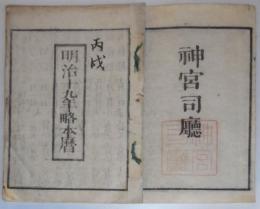 神宮司廳
丙戌
明治十九年略本暦